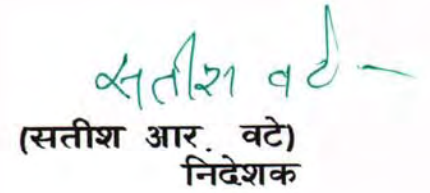 सतीश वटे
(सतीश आर. वटे)
निदेशक